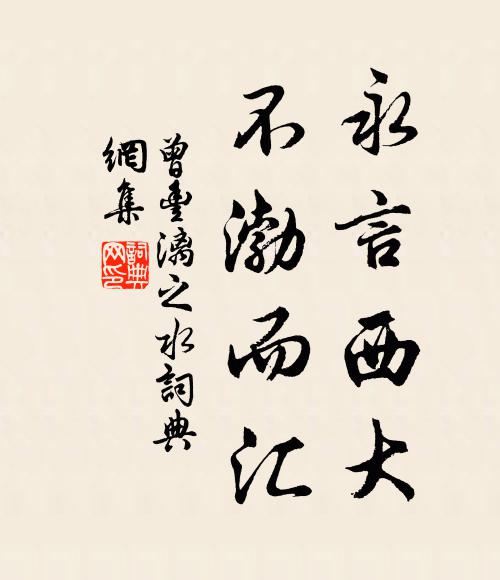 永言西大
不渤而汇
曾豊漓之水詞典
網集
詞典
网印